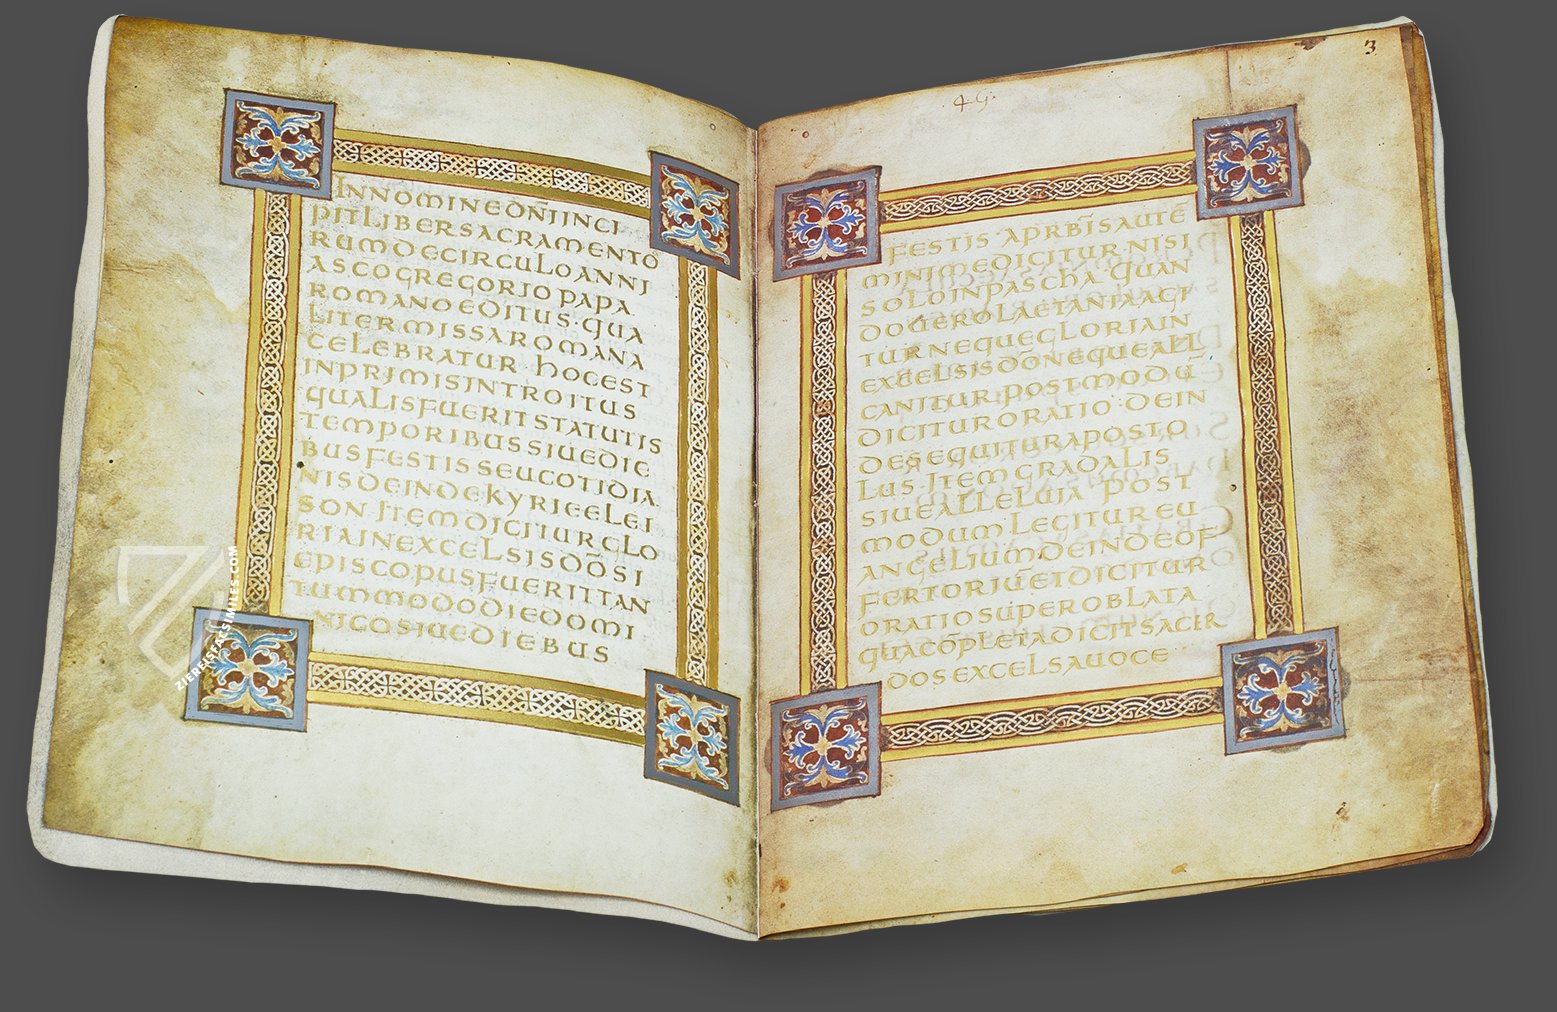 INNOMINEDÑIINCI
PITLIBERSACRAMENTO
RUMDECIRCULOANNI
ASCOGREGORIOPAPA
ROMANOEDITUS·QUA
LITERMISSAROMANA
CELEBRATUR HOCEST
INPRIMISINTROITUS
QUALISFUERITSTATUTIS
TEMPORIBUSSIUEDIE
BUSFESTISSEUCOTIDIA
NISDEINDEKYRIEELEI
SON ITEMDICITURGLO
RIAINEXCELSISDŌSI
EPISCOPUSFUERITTAN
TUMMODODIEDOMI
NICOSIUEDIEBUS
3
49.
FESTIS APRBĪSAUTĒ
MINIMEDICITURNISI
SOLOINPASCHA QUAN
DOUEROLAETANIAAGI
TURNEQUEGLORIAIN
EXCELSISDŌNEQUEALL
CANITUR·POSTMODŪ
DICITURORATIO·DEIN
DESEQUITURAPOSTO
LUS·ITEMGRADALIS
SIUEALLELUIA POST
MODUM LEGITUREU
ANGELIUMDEINDEOF
FERTORIŪETDICITUR
ORATIOSUPEROBLATA
QUACŌPLETADICITSACER
DOSEXCELSAUOCE
ZIEREIS FACSIMILES.COM